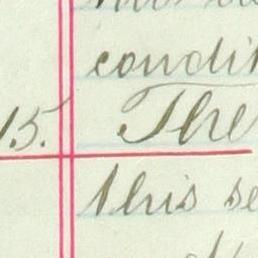 condit
15. The
this se